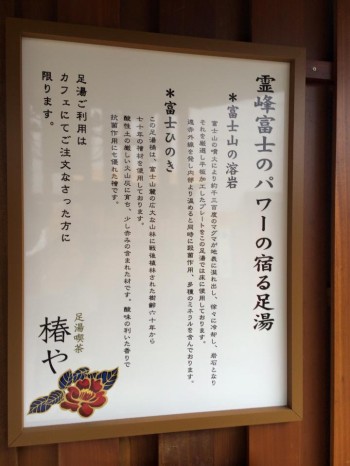 霊峰富士のパワーの宿る足湯
＊富士山の溶岩
富士山の噴火により約千三百度のマグマが地表に溢れ出し、徐々に冷却し、岩石となり
それを厳選し平板加工したプレートをこの足湯では床に使用しております。
遠赤外線を発し内部より温めると同時に殺菌作用、多種のミネラルを含んでおります。
＊富士ひのき
この足湯槽は、富士山麓の広大な山林に戦後植林された樹齢六十年から
七十年の檜材を使用しております。
酸性土の厳しい火山灰に育ち、少し赤みの含まれた材です。酸味の利いた香りで
抗菌作用にも優れた檜です。
足湯ご利用は
カフェにてご注文なさった方に
限ります。
足湯喫茶
椿や